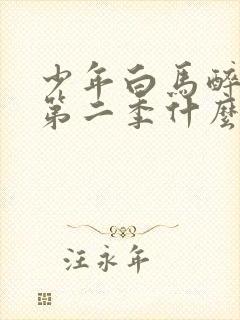 少年白馬醉
第二季什麼
汪永年